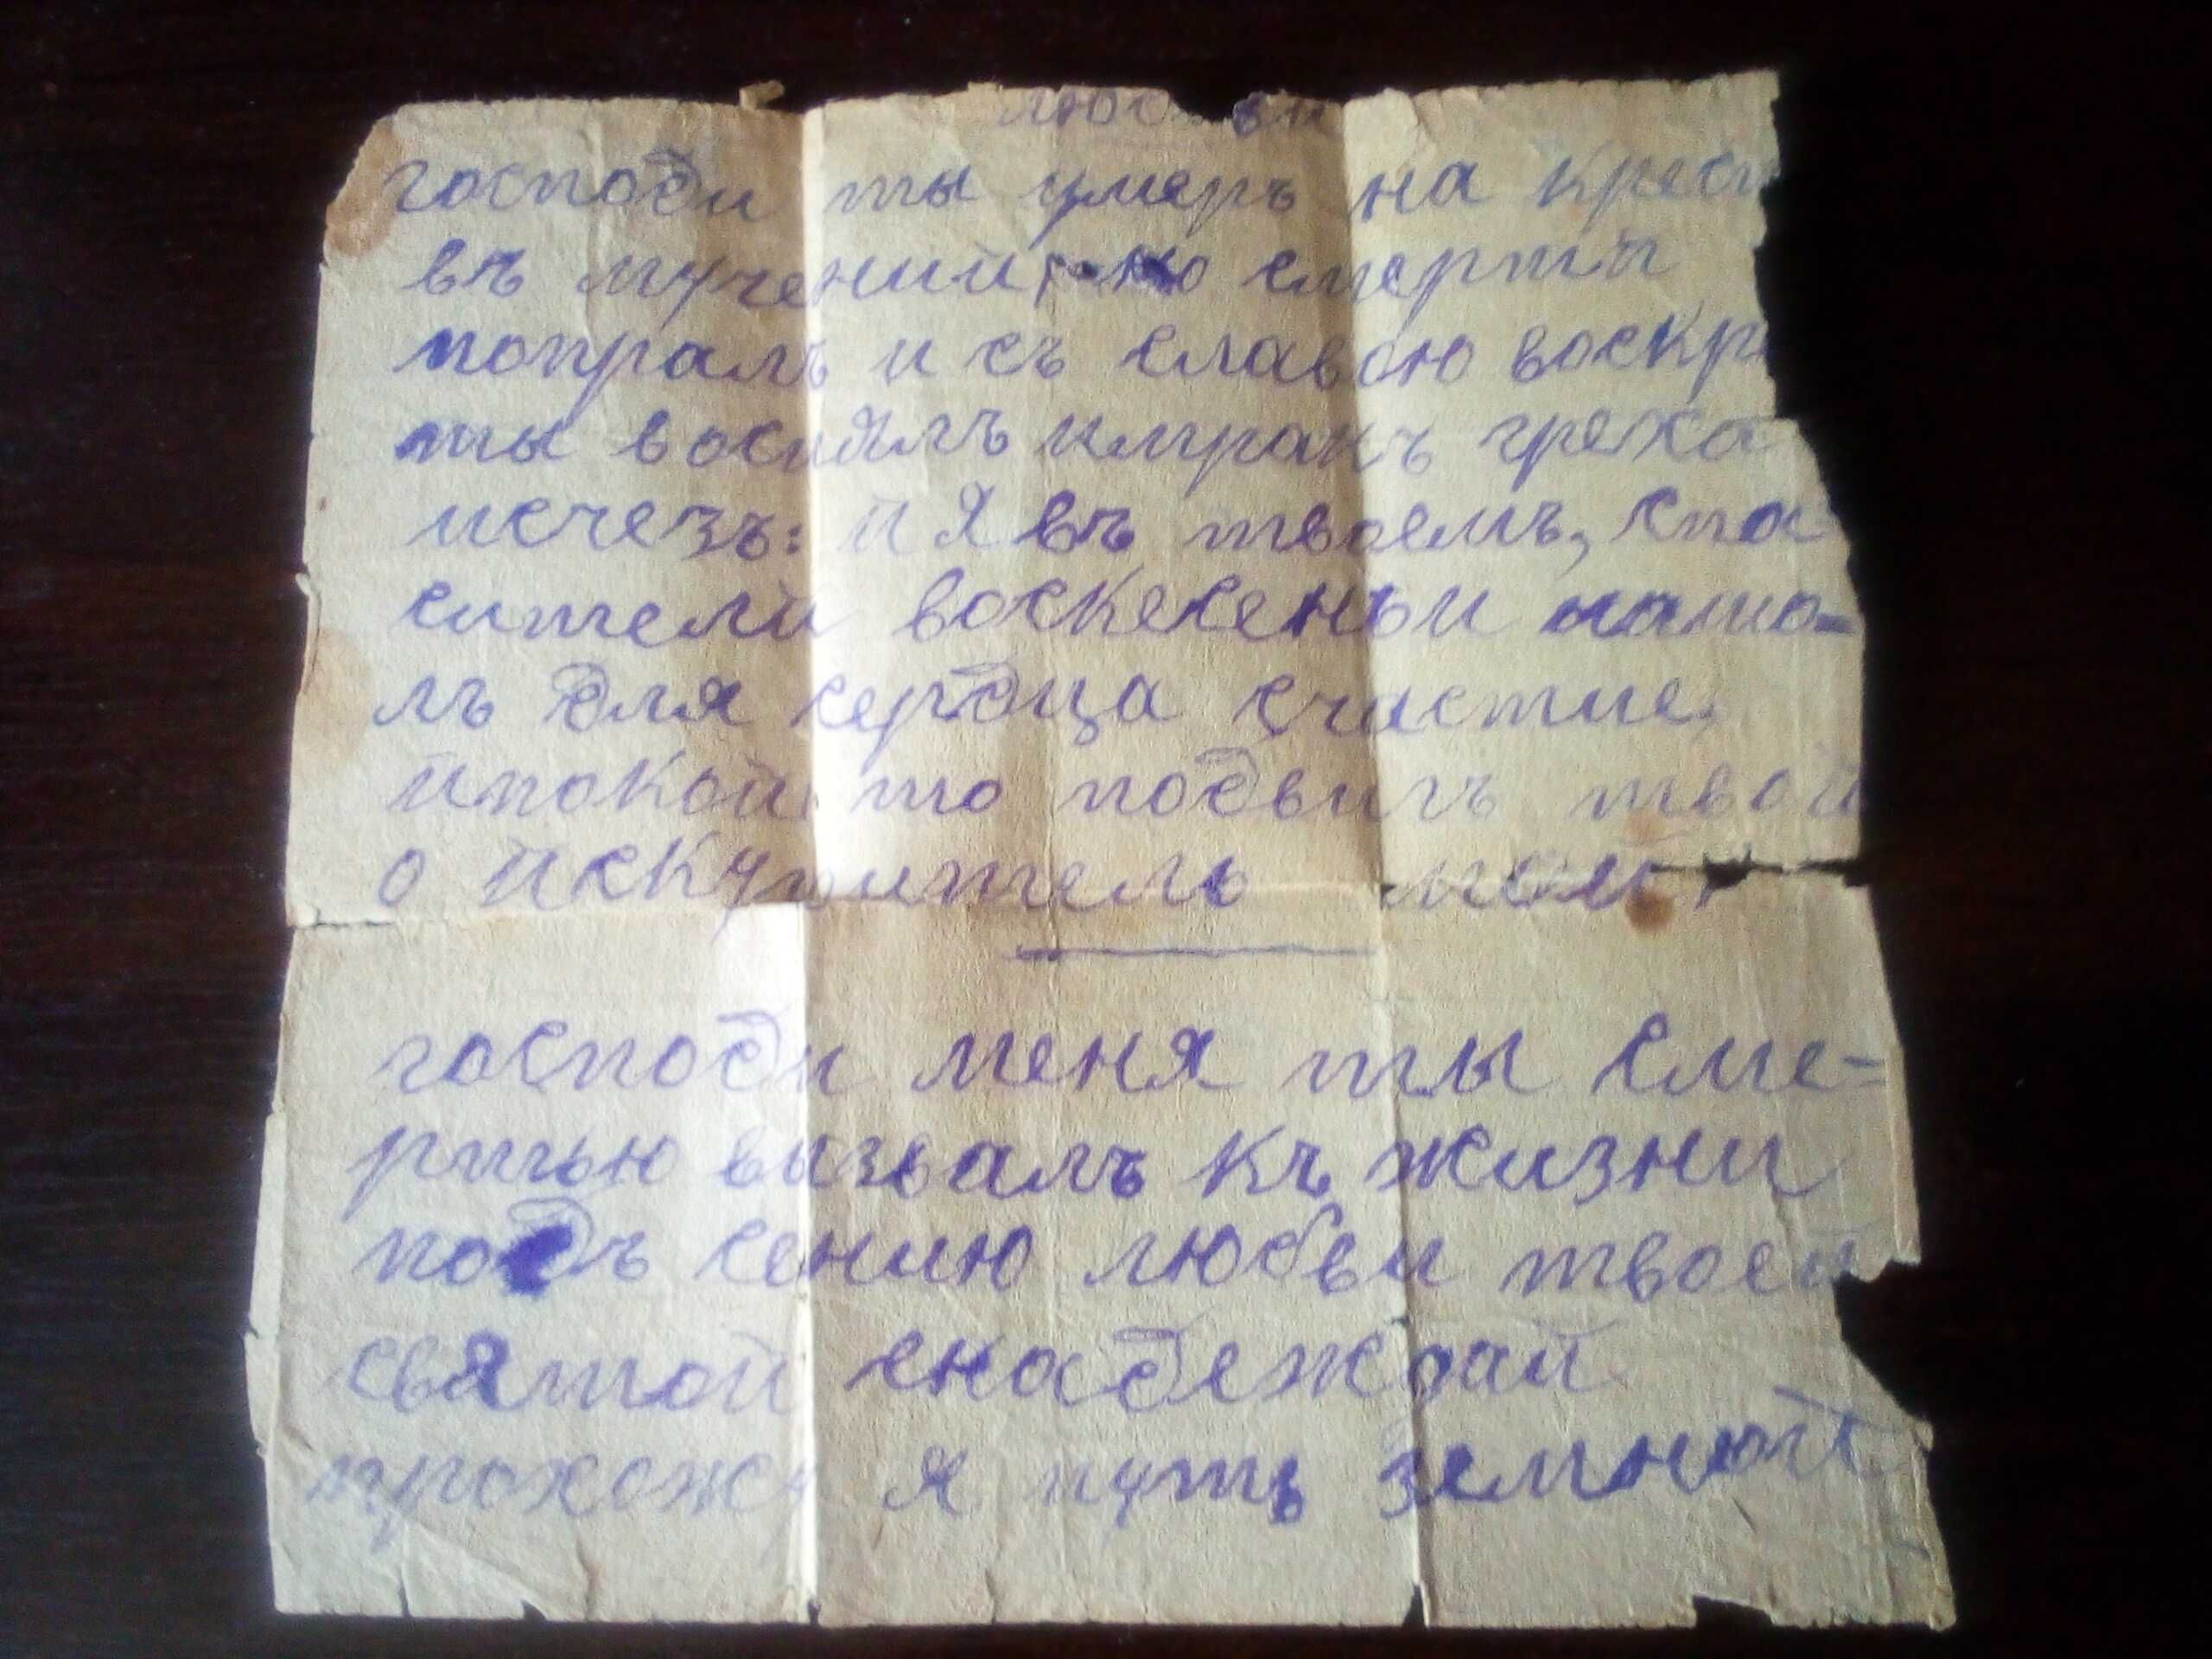 любви
господи ты умеръ на крест
въ мучений, но смерть
попралъ и съ славою воскр
ты восиялъ имракъ греха
исчезъ: и я въ твоемъ, спа-
сители воскесеньи наша-
лъ для сердца счастие,
йпокой то подвигъ твой
о искупитель мои
господи меня ты сме-
ртью вызвалъ къ жизни
подъ сению любви твоей
святой снадеждай
прохожу я путь земной